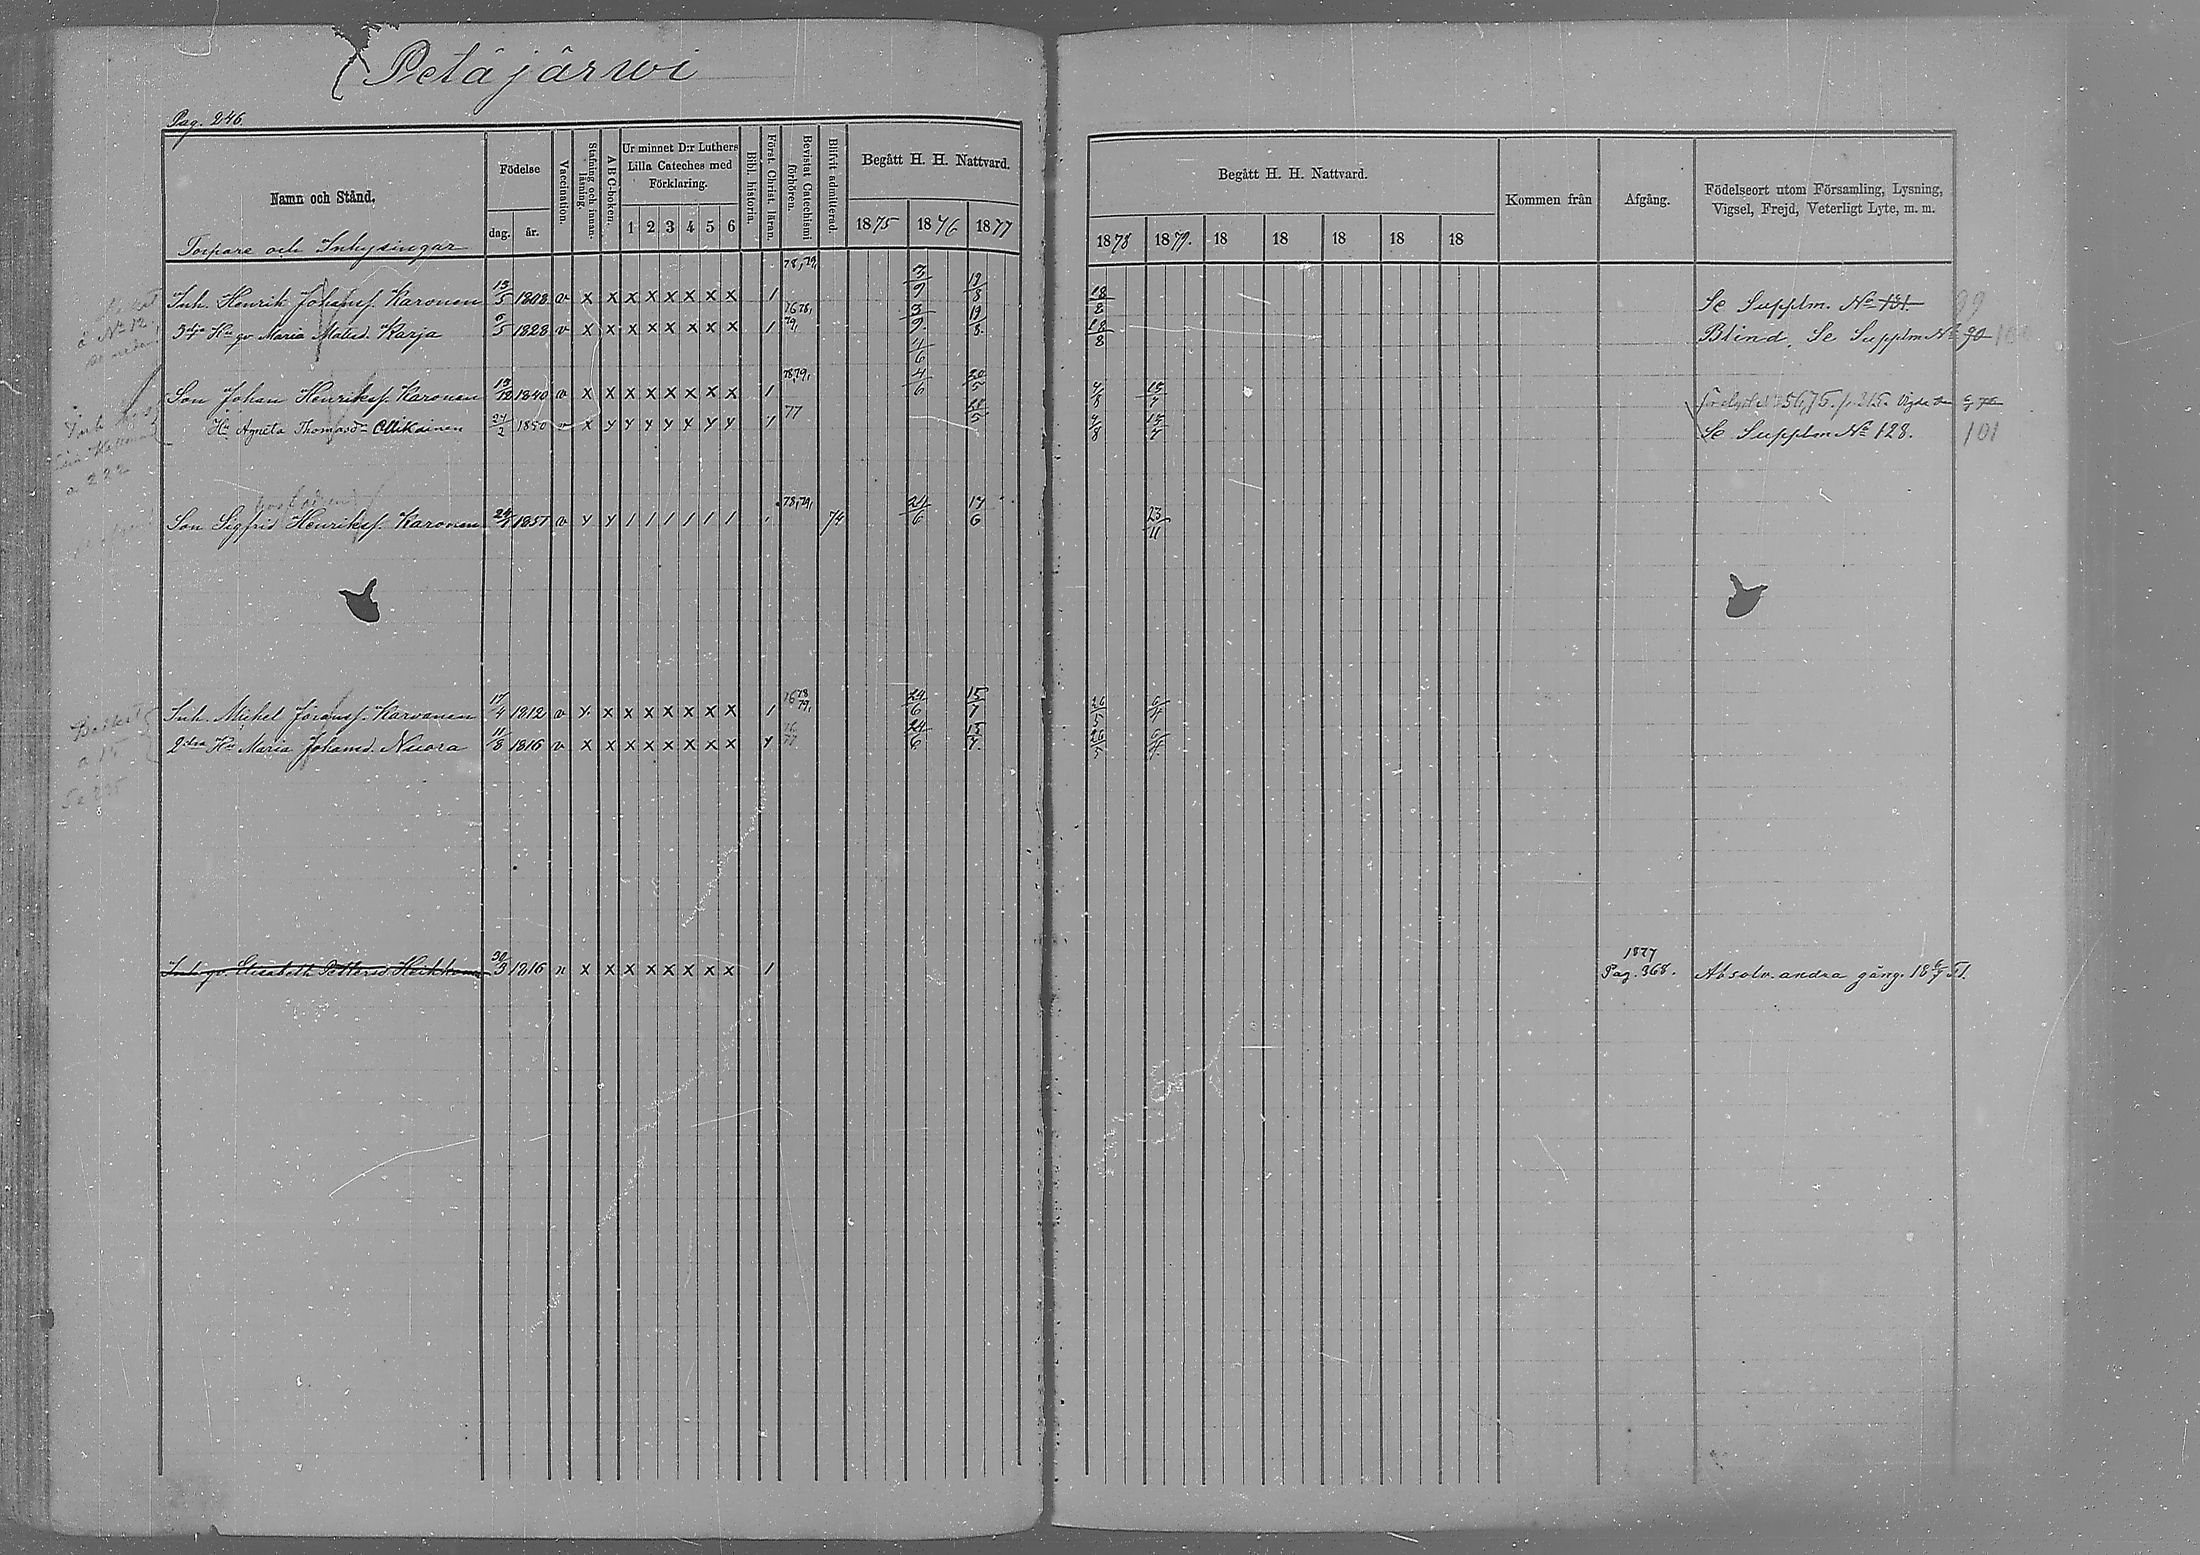 Petäjärwi
Pag. 246.
Namn och Stånd.
Födelse
dag. år.
Vaccination.
Stafning och innanläsning.
A B C-boken.
Ur minnet D:r Luthers Lilla Cateches med Förklaring.
1 2 3 4 5 6
Bibl. historia.
Först. Christ. läran.
Bevistat Catechismi förhören.
Blifvit admitterad.
Begått H. H. Nattvard.
1875 1876 1877
Begått H. H. Nattvard.
1878 1879. 18 18 18 18 18
Kommen från
Afgång.
Födelseort utom Församling, Lysning, Vigsel, Frejd, Veterligt Lyte, m. m.
Torpare och Inhysingar
Inh. Henrik Johansf. Karonen 13/5 1808 v x x x x x x x x 1 78, 79, 3/9 19/8 18/8 Se Supplm. No 131. 99
3dje Hu gv Maria Matsd. Karja 1828 v x x x x x x x x 1 76 78, 79, 3/9. 19/8. 18/8 Blind. Se Supplm No 90 100
4/6
Son Johan Henriksf. Karonen 13/12 1840 v x x x x x x x x 1 78 79, 4/6 20/5 4/8 15/7
Hu Agneta Thomasdr Ollikainen 24/2 1850 v x y y y y y y y 77 4/8 15/7 Se Supplm No 128. 101
Son Sigfrid Henriksf. Karonen 1851 v y y 1 1 1 1 1 1 78, 79, 74 24/6 17/6 23/11
Inh. Michel Göransf. Karvonen 17/4 1812 v x x x x x x x x 1 76 78 79, 24/6 15/7 26/5 6/4
2dra Hu Maria Johansd. Nuora 11/8 1816 v x x x x x x x x 76 77 24/6 15/7. 26/5 6/4
Inh. gv Elisabeth Pettersd. Heikkonen 30/3 1816 n x x x x x x x x 1 1877 Pag. 368. Absolv. andra gång. 18 51.